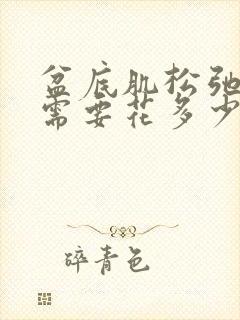 盆底肌松弛
需要花多少
碎青色